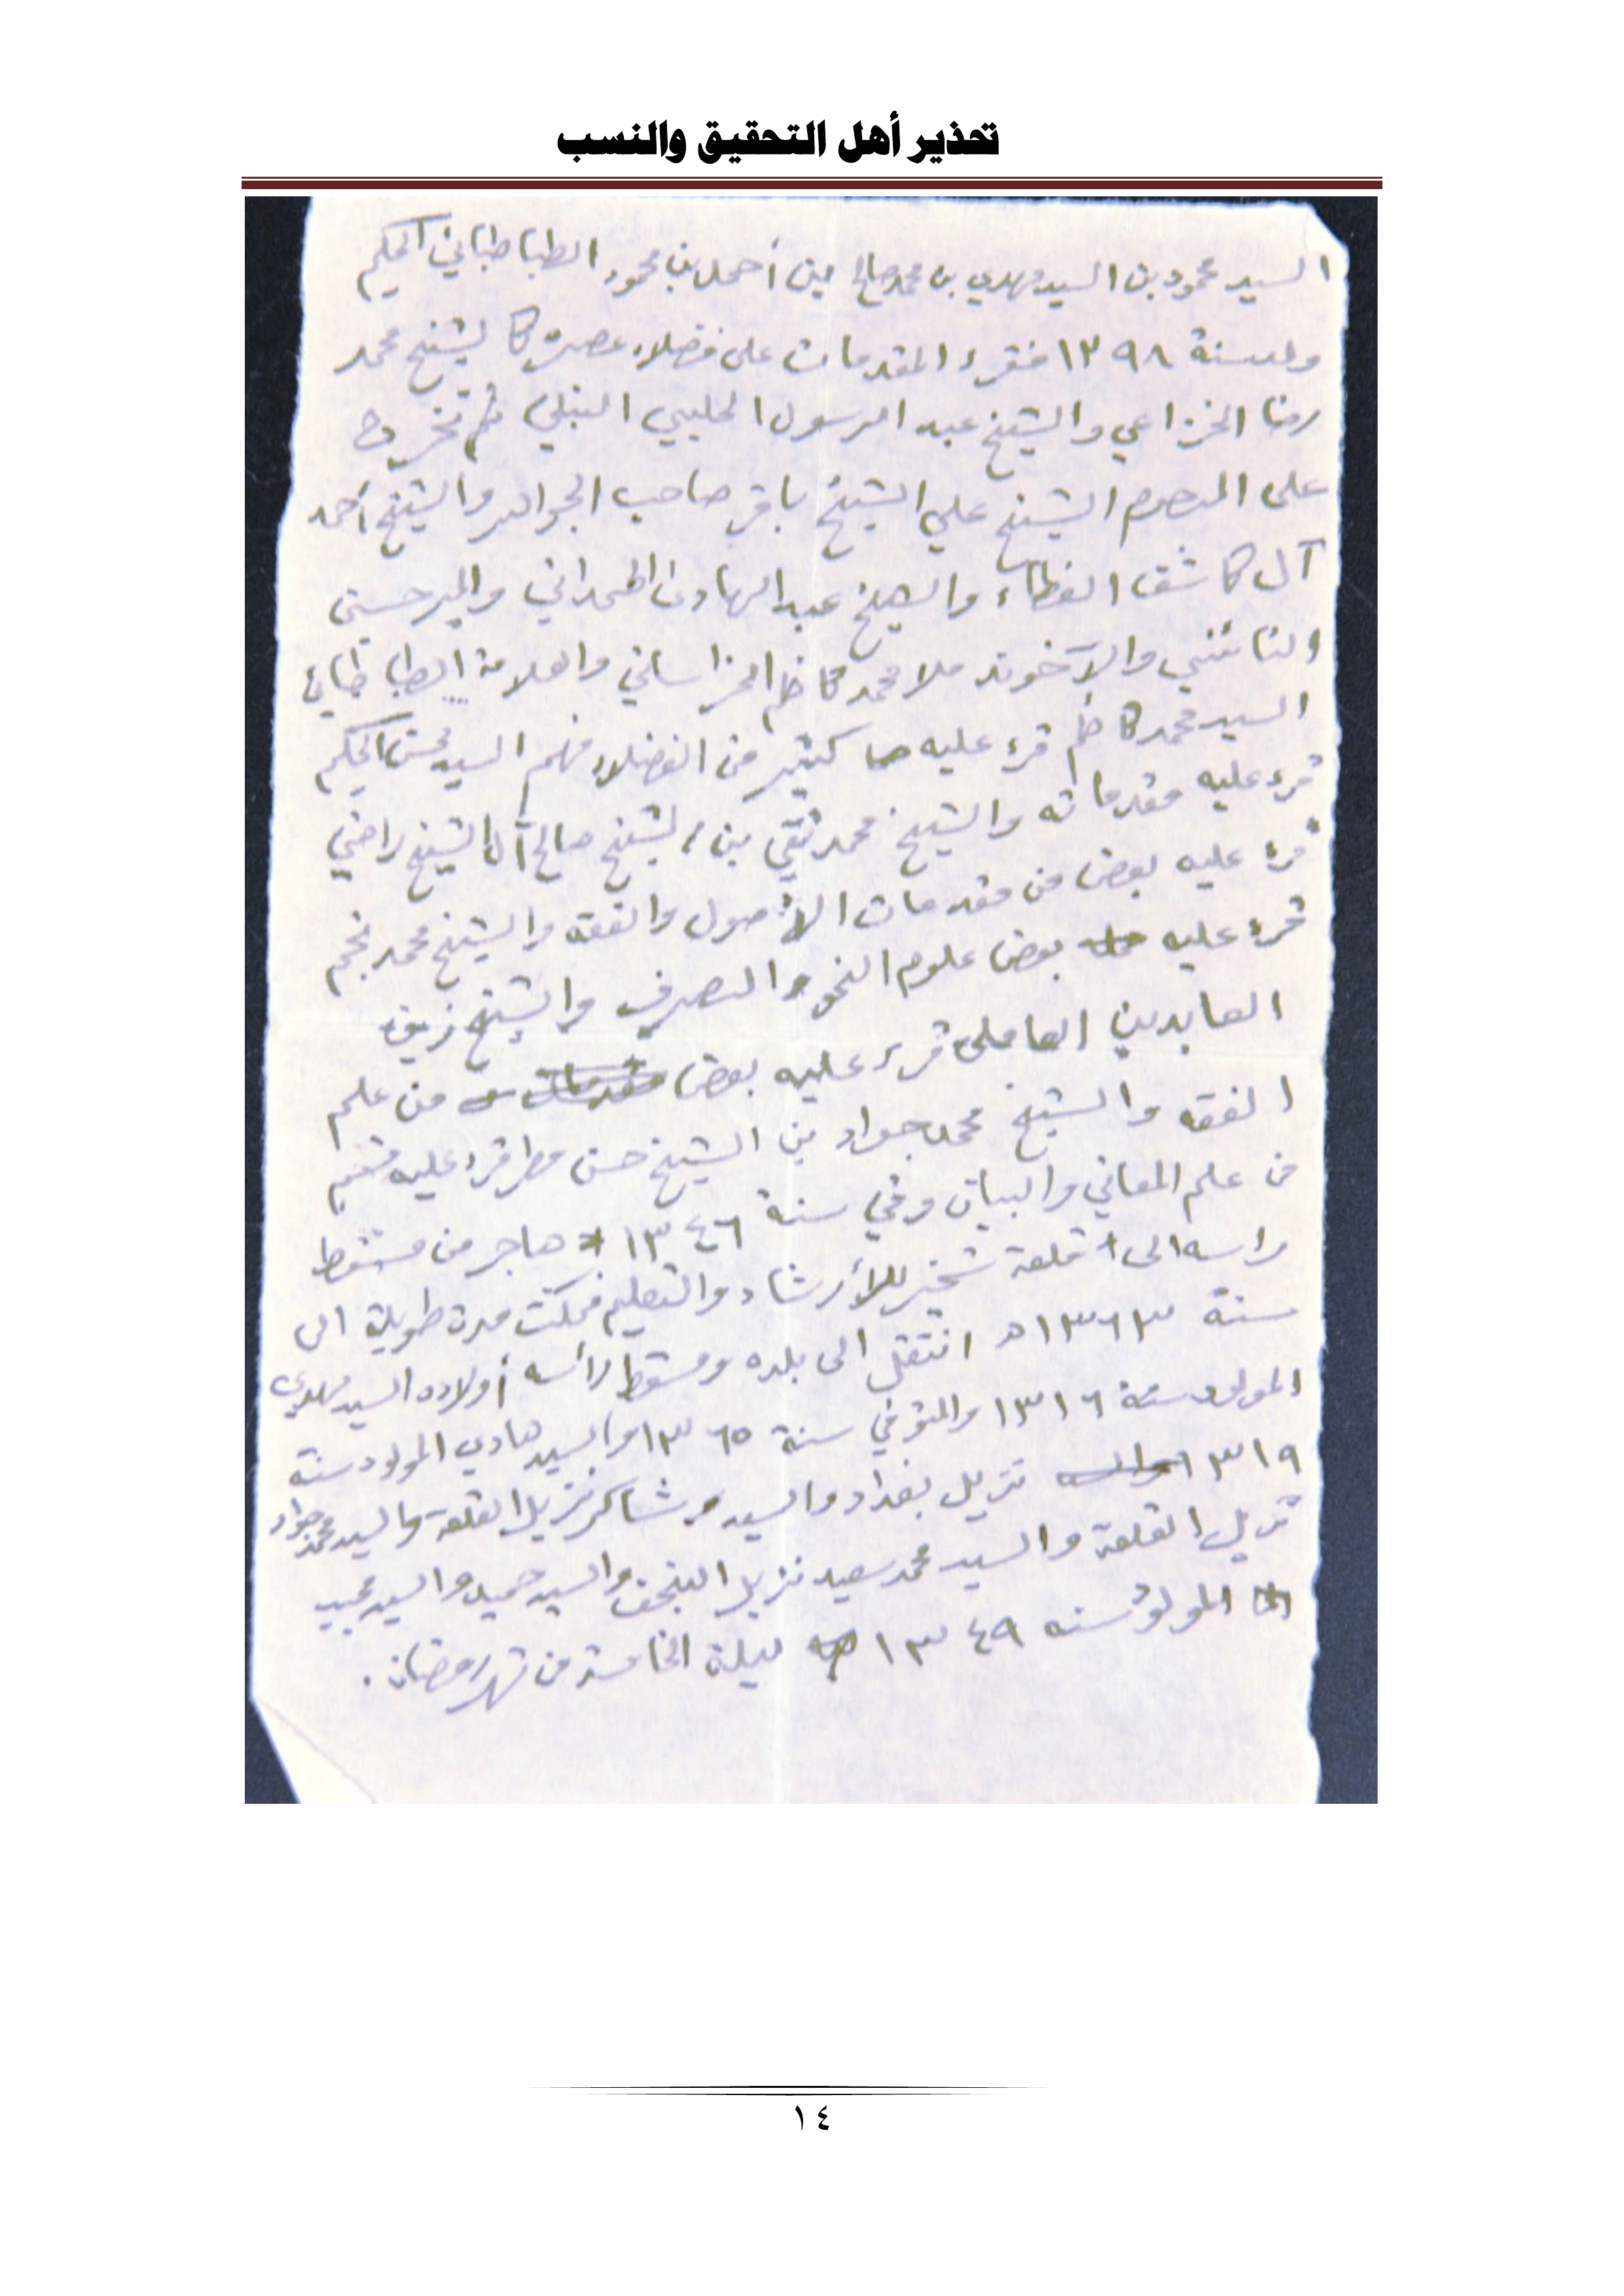 تحذير أهل التحقيق والنسب
السيد محمود بن السيد مهدي بن محمد صالح بن أحمد بن محمود الطباطبائي الحكيم
ولد سنة ١٣٩٨ فقرء المقدمات على فضلاء عصره كالشيخ محمد
رضا الخزاعي والشيخ عبد الرسول الحليبي النبلي ثم تخرج
على المرحوم الشيخ علي الشيخ باقر صاحب الجواهر والشيخ أحمد
آل كاشف الغطاء والشيخ عبد الهادي الهمداني والميرحسين
النائني والآخوند ملا محمد كاظم الخراساني والعلامة الطباطبائي
السيد محمد كاظم قرء عليه كثير من الفضلاء منهم السيد محسن الحكيم
قرء عليه مقدماته والشيخ محمد تقي بن الشيخ صالح آل الشيخ راضي
قرء عليه بعض من مقدمات الأصول والفقه والشيخ محمد نجم
قرء عليه بعض علوم النحو والصرف والشيخ زين
العابدين العاملي قرء عليه بعض من علم
الفقه والشيخ محمد جواد بن الشيخ حسن مطر قرء عليه قسم
من علم المعاني والبيان وفي سنة ١٣٤٦ هاجر من مسقط
راسه الى قلعة سخير للأرشاد والتعليم فمكث مدة طويلة الى
سنة ١٣٦٣ه انتقل الى بلده ومسقط رأسه أولاده السيد مهدي
المولود سنة ١٣١٦ والمتوفي سنة ١٣٦٥ والسيد هادي المولود سنة
١٣١٩ نزيل بغداد والسيد شاكر نزيل القلعة والسيد محمد جواد
نزيل القلعة والسيد محمد سعيد نزيل النجف والسيد حميد والسيد مجيد
المولود سنه ١٣٤٩ ليلة الخامسة من شهر رمضان.
١٤